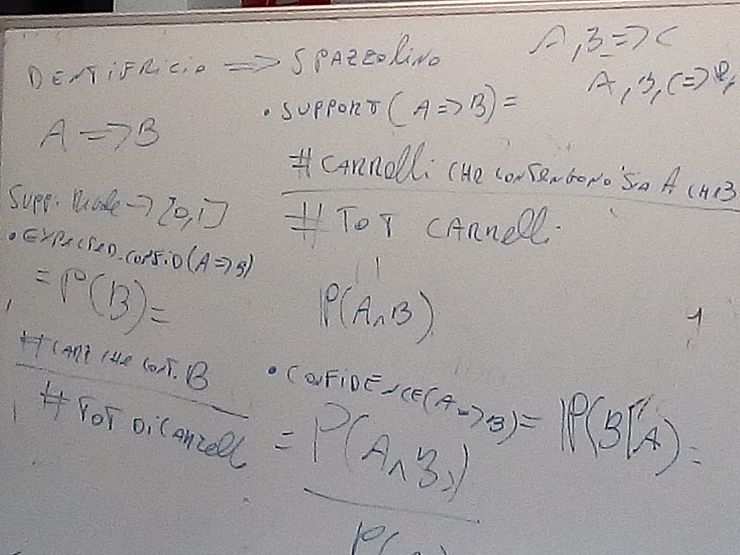 DENTIFRICIO => SPAZZOLINO
A => B
A, B => C
A, B, C =>
• SUPPORT (A => B) =
# CARRELLI CHE CONTENGONO SIA A CHE B
# TOT CARRELLI
||
P(A ∧ B)
→ [0,1]
• EXPECTED CONFID (A => B)
= P(B) =
# CARR CHE CONT. B
# TOT DI CARRELLI
• CONFIDENCE (A => B) = P(B|A) =
= P(A ∧ B)
P(
1